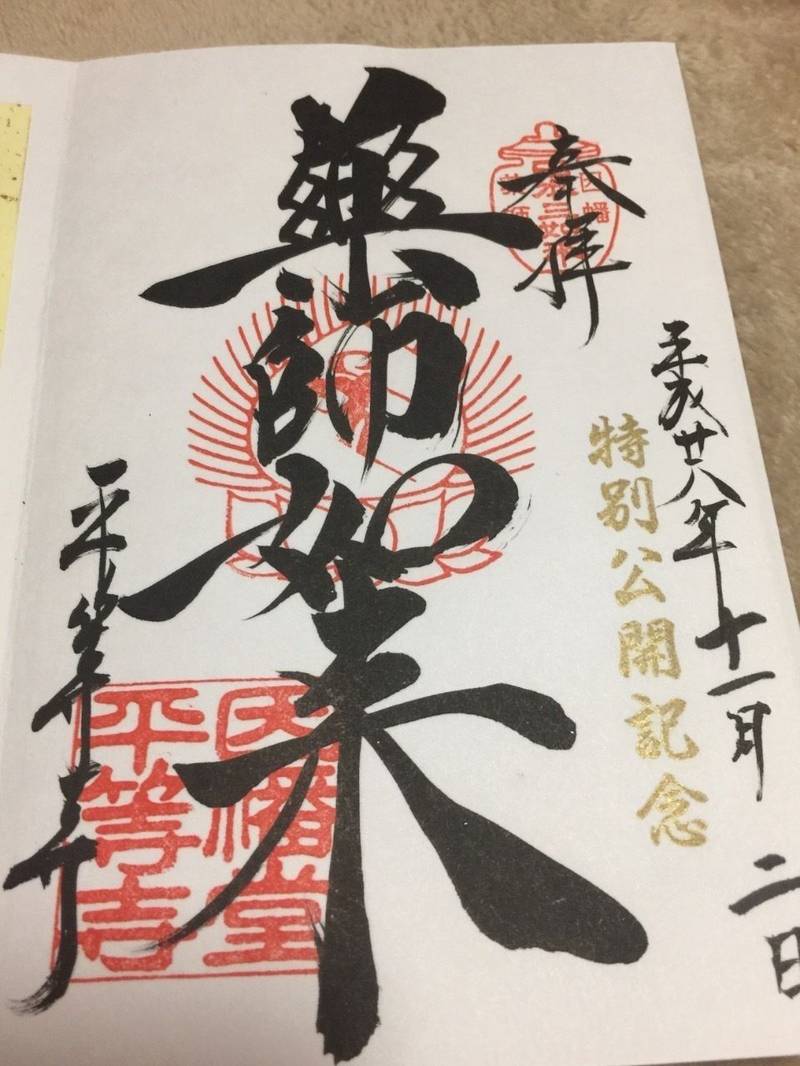 奉拝
平成廿八年十一月
二日
特別公開記念
薬師如来
平等寺
因幡堂
平等寺
因幡